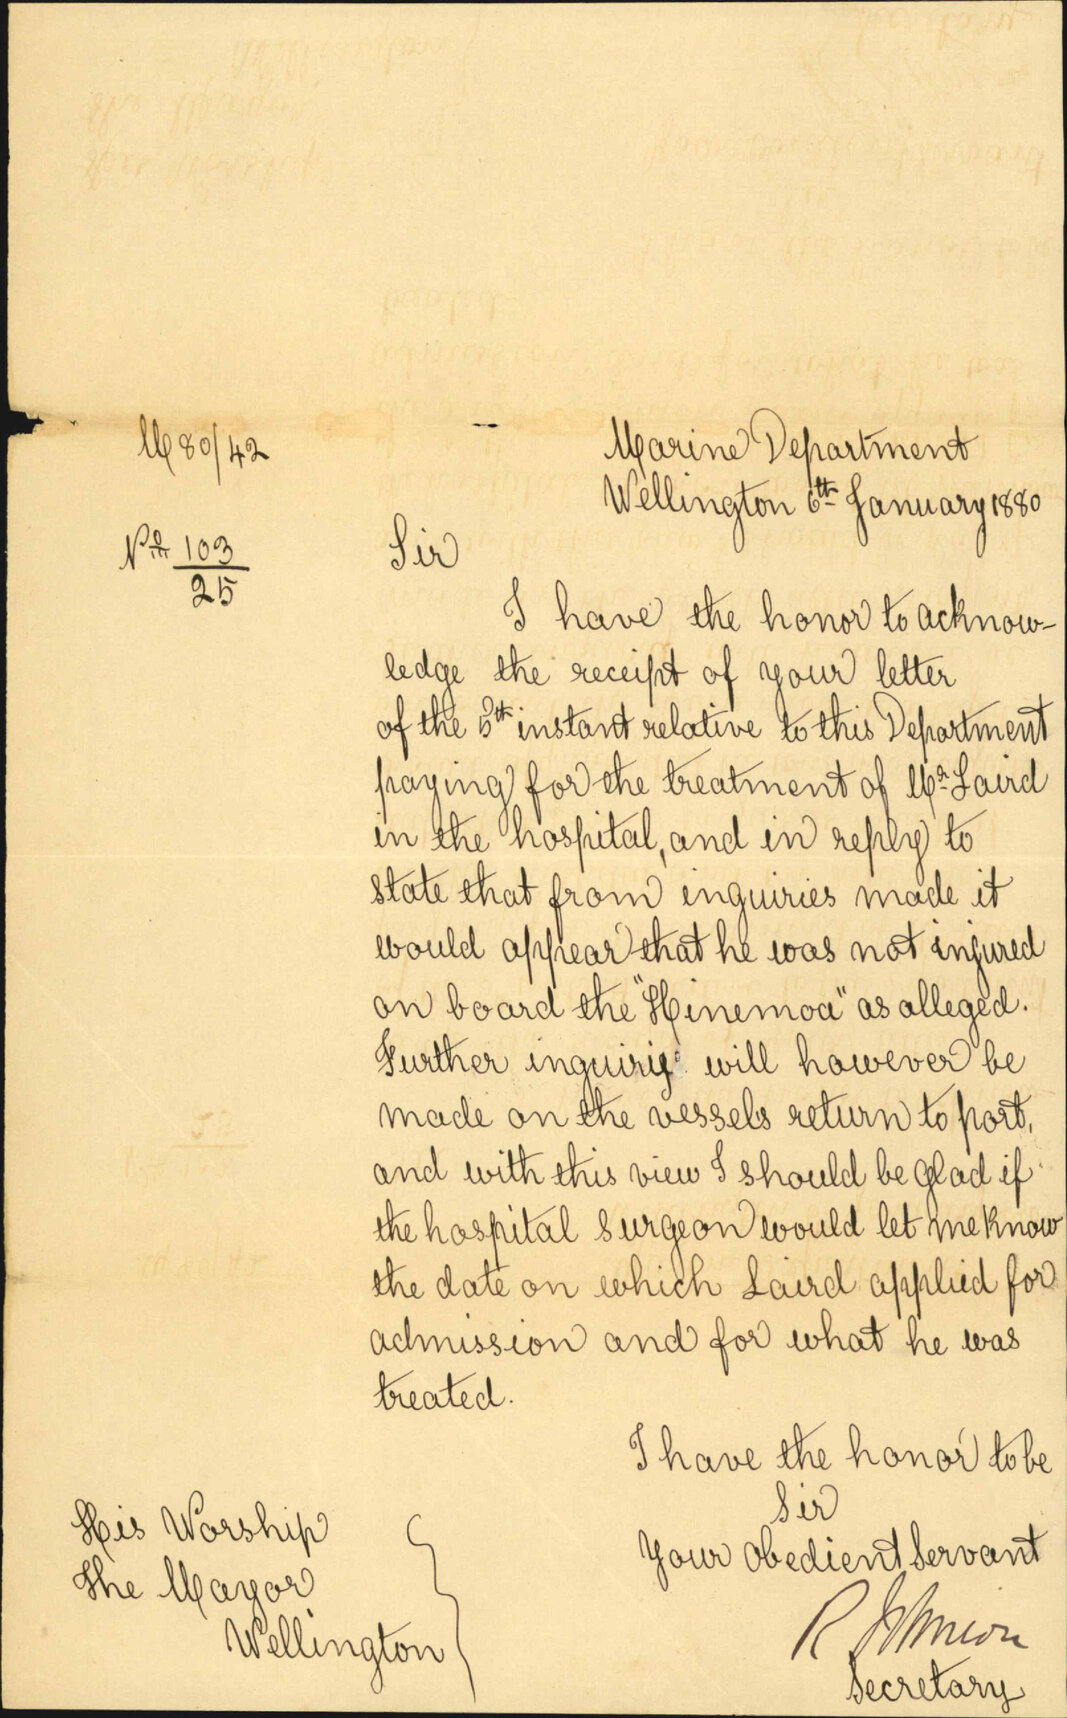 M 80/42
Marine Department
Wellington 6th January 1880
No 103
25
Sir
I have the honor to acknow-
ledge the receipt of your letter
of the 5th instant relative to this Department
paying for the treatment of Mr Laird
in the hospital, and in reply to
state that from inquiries made it
would appear that he was not injured
on board the "Hinemoa" as alleged.
Further will however be
made on the vessels return to port,
and with this view I should be glad if
the hospital surgeon would let me know
the date on which Laird applied for
admission and for what he was
treated.
I have the honor to be
Sir
Your obedient Servant
R Johnson
Secretary
His Worship
The Mayor
Wellington